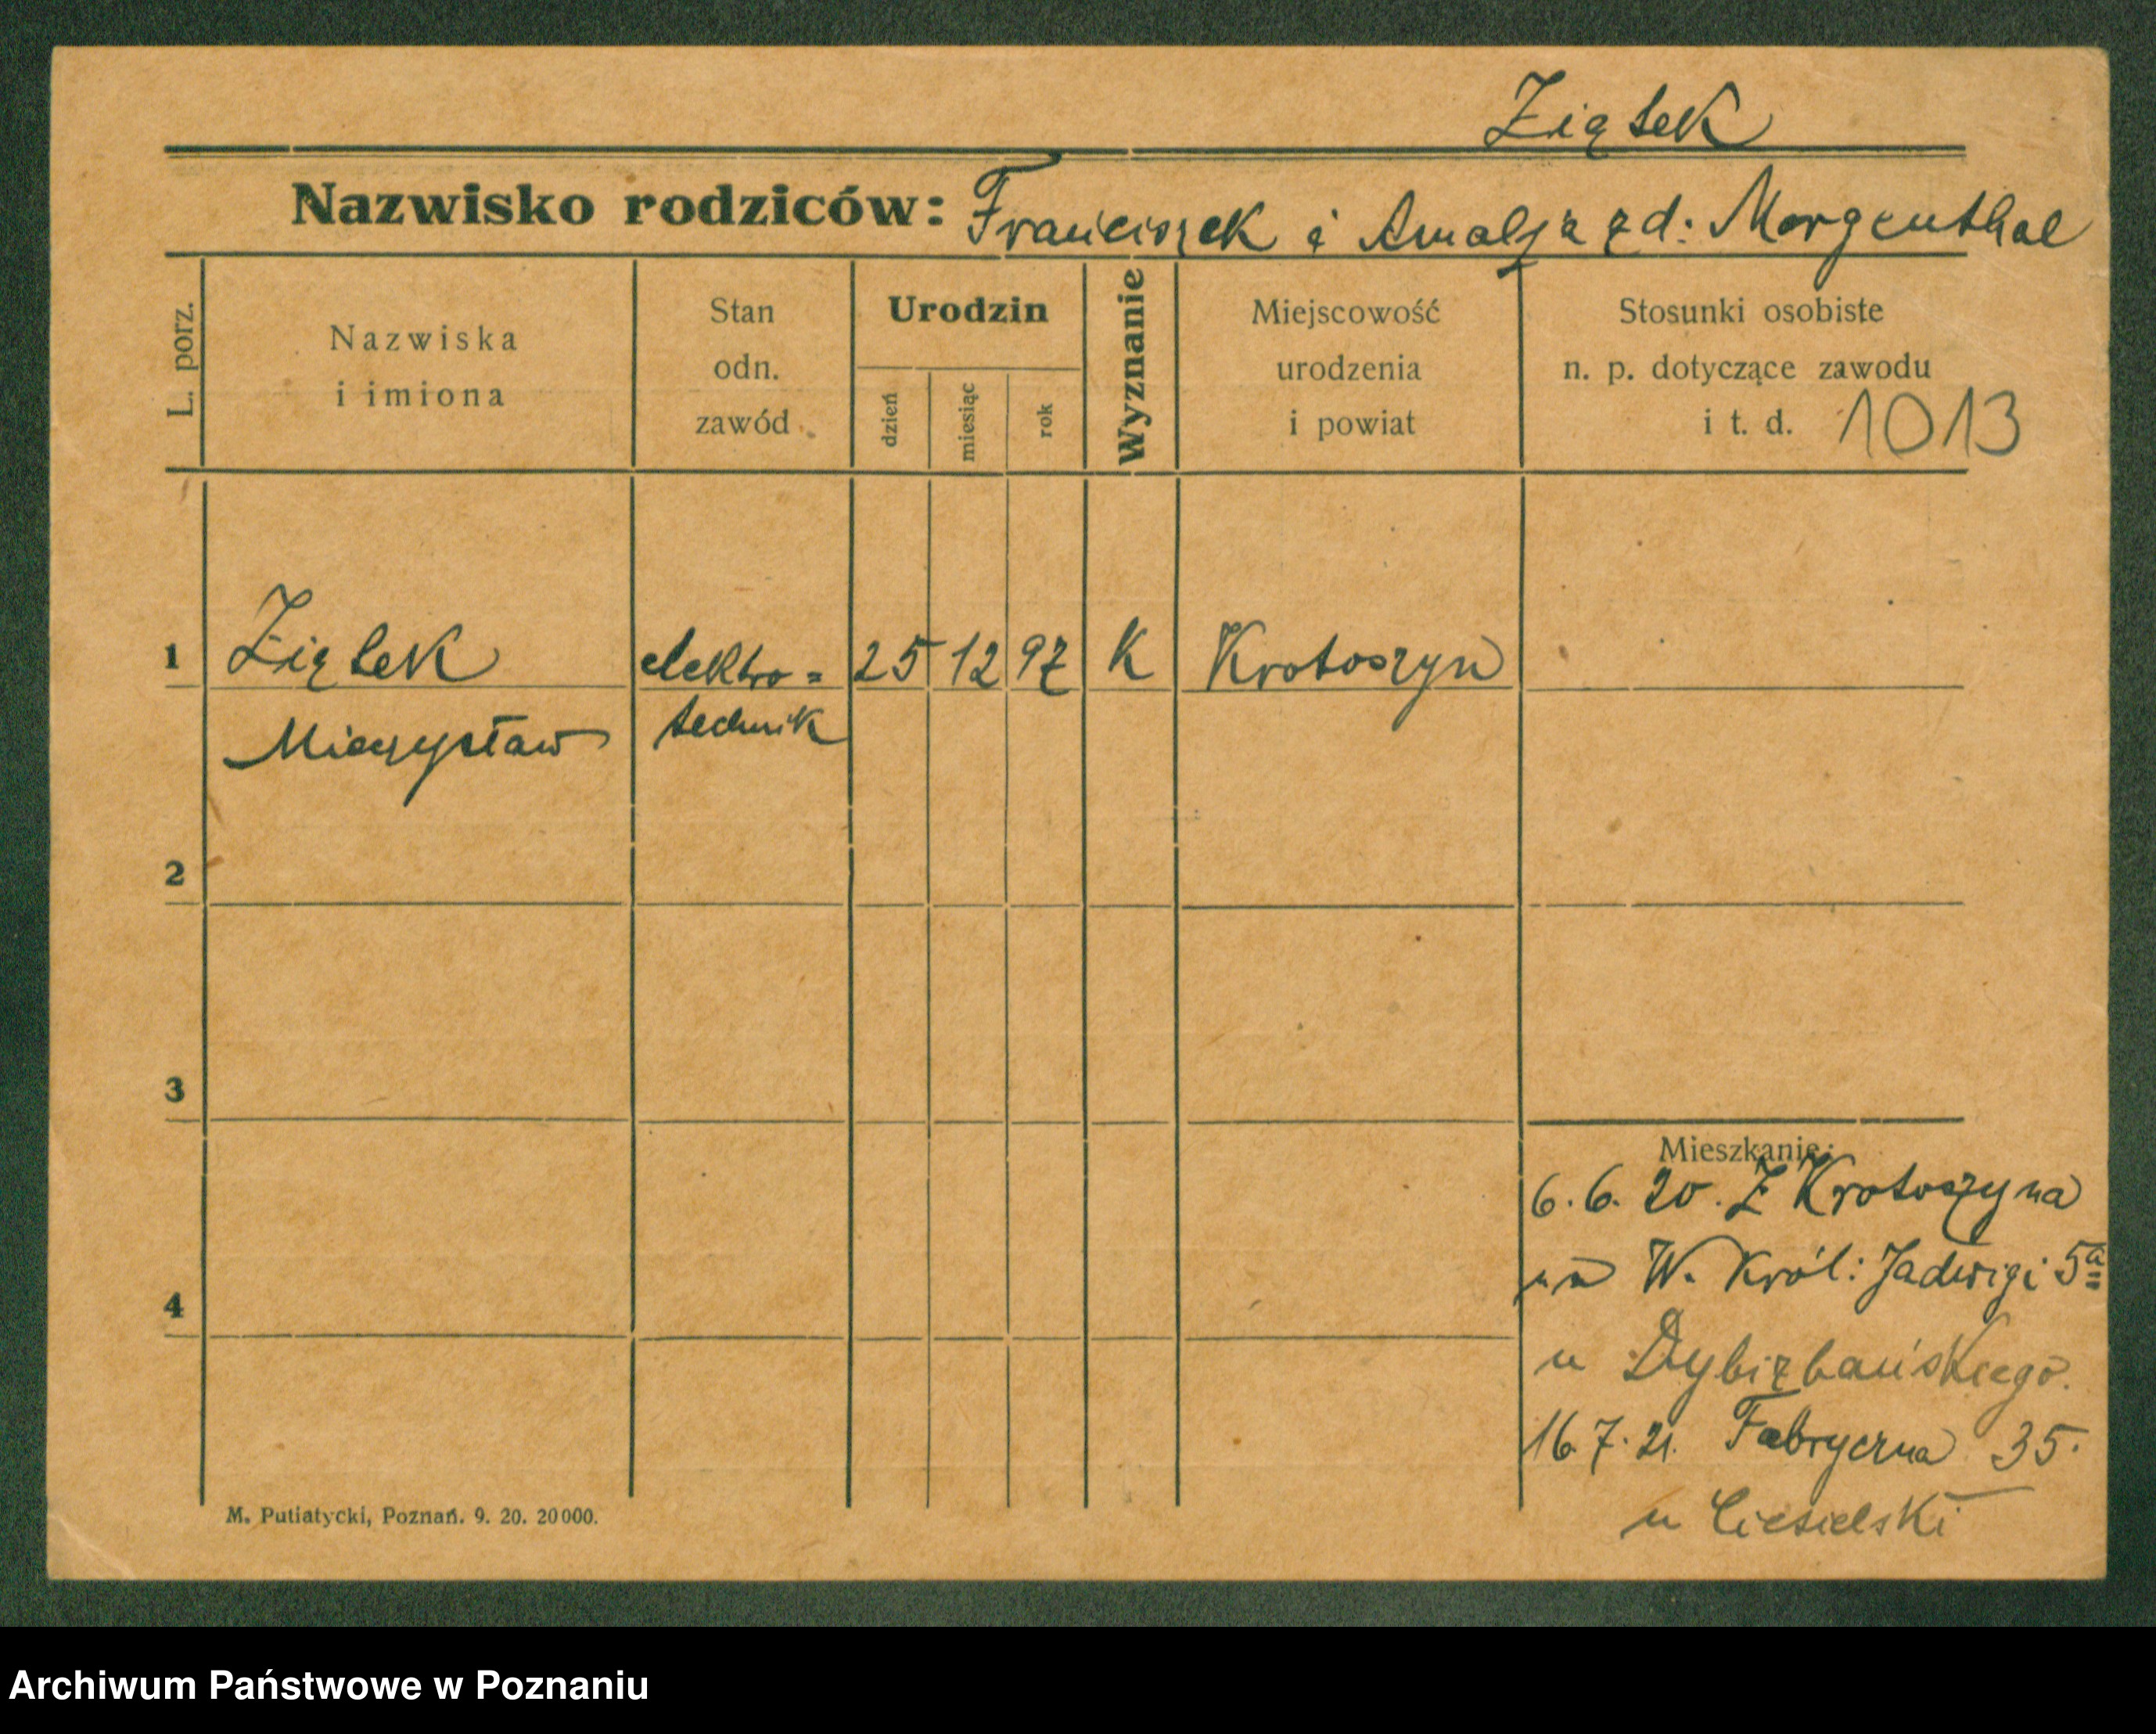 Ziątek
Nazwisko rodziców: Franciszek i Amalja zd: Morgenthal
L. porz.
Nazwiska
i imiona
Stan
odn.
zawód
Urodzin
dzień
miesiąc
rok
Wyznanie
Miejscowość
urodzenia
i powiat
Stosunki osobiste
n. p. dotyczące zawodu
i t. d. 1013
1 Ziątek elektro= 25 12 97 K Krotoszyn
Mieczysław technik
2
3
4
Mieszkanie:
6.6.20. Z Krotoszyna
na W. Król: Jadwigi 5a
u Dybizbańskiego.
16.7.21. Fabryczna 35.
u Ciesielski
M. Putiatycki, Poznań. 9. 20. 20000.
Archiwum Państwowe w Poznaniu